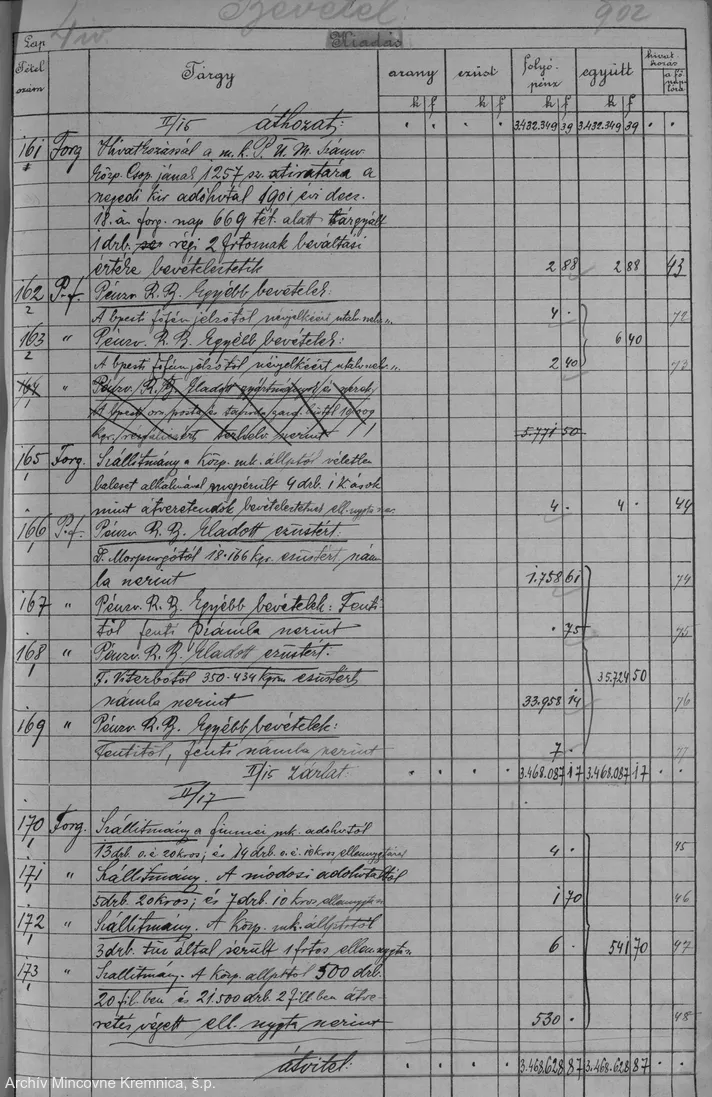 Bevétel:
902
4 iv.
Lap
Kiadás
Tétel szám
Tárgy
arany
ezüst
folyó-pénz
együtt
hivat-kozás
a fő-naplóra
k f k f k f k f
II/15 áthozat: 3.432.349 39 3.432.349 39
161 Forg Hivatkozással a m. k. P. ü. M. Számv.
közp. Csop. jának 1257 sz. átiratára a
negedi kir adóhvtál 1901 évi decz.
18. á. forg. nap 669 tét. alatt tárgyalt
1 drb. régi 2 frtosnak beváltási
értéke bevételeztetik 2 88 2 88 43
162 P.f. Pénzv. R. B. Egyébb bevételek:
A bpesti főfémjelzőtől 4 . 72
163 " Pénzv. R. B. Egyébb bevételek: 6 40
A bpesti főfémjelzőtől 2 40 73
164 " Pénzv. R. B. Eladott
5.771 50
165 Forg. Szállitmány a közp. mk. állptól véletlen
baleset alkalmával megsérült 4 drb. 1 kások
mint átveretendők bevételeztetnek 4 . 4 . 44
166 P.f. Pénzv. R. B. Eladott ezüstért:
Morpurgótól 18.166 kgr. ezüstért, nám-
la szerint 1.758 61 74
167 " Pénzv. R. B. Egyébb bevételek: Fenti-
től fenti számla szerint . 75 75
168 " Pénzv. R. B. Eladott ezüstért.
F. Viterbótól 350.434 kgrm ezüstért 35.724 50
számla szerint 33.958 14 76
169 " Pénzv. R. B. Egyébb bevételek:
Fentitől, fenti számla szerint 7 . 77
II/15 Zárlat: 3.468.087 17 3.468.087 17
II/17
170 Forg. Szállitmány a fiumei mk. adóhvtól
13 drb. o. é. 20 kros; és 14 drb. o. é. 10 kros 4 . 45
171 " Szállitmány. A módosi adóhvtaltól
5 drb. 20 kros; és 7 drb. 10 kros 1 70 46
172 " Szállitmány. A közp. mk. állptól
3 drb. tűz által sérült 1 frtos 6 . 541 70 47
173 " Szállitmány. A közp. állptól 500 drb.
20 fil.ben és 21.500 drb. 2 fill.ben átve-
retés végett ell. nygta szerint 530 . 48
átvitel: 3.468.628 87 3.468.628 87
Archív Mincovne Kremnica, š.p.